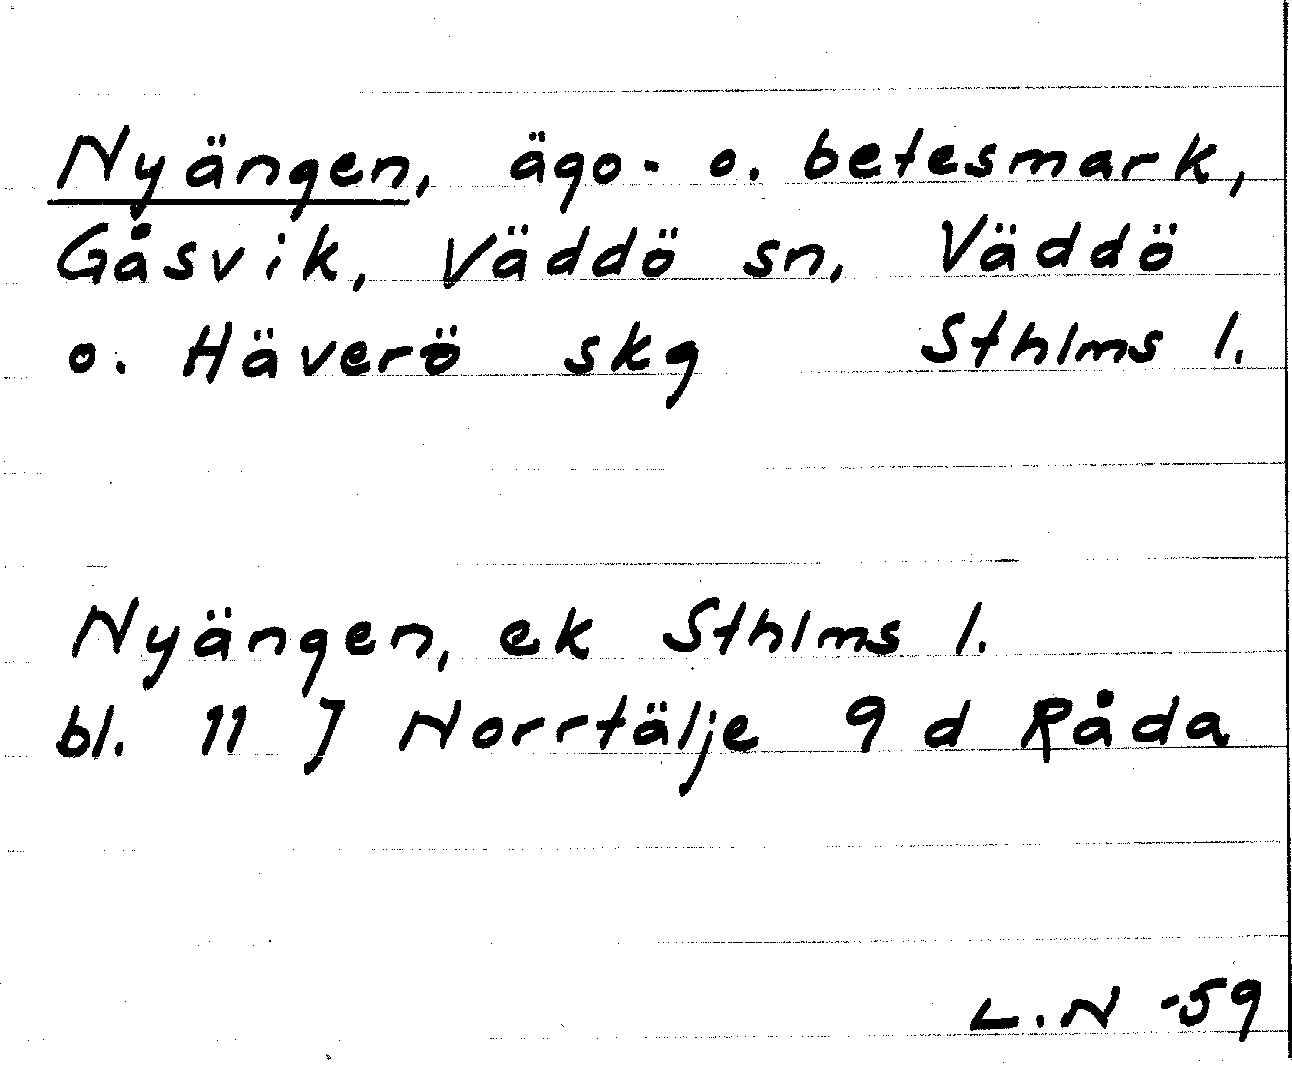 Nyängen, ägo- o. betesmark,
Gåsvik, Väddö sn, Väddö
o. Häverö skg Sthlms l.
Nyängen, ek Sthlms l.
bl. 11 J Norrtälje 9 d Råda
L.N -59